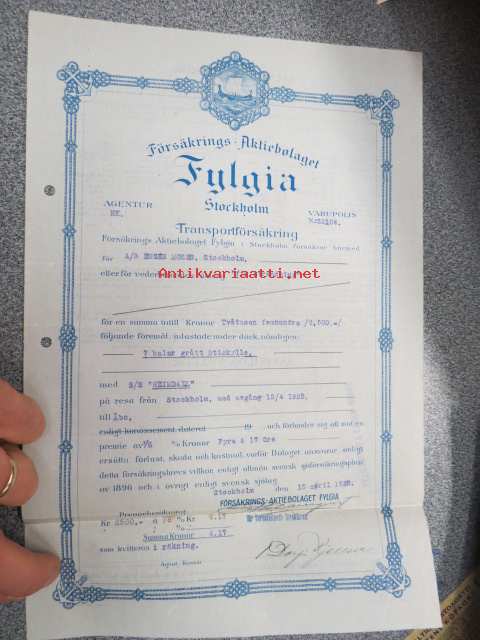 Försäkrings-Aktiebolaget
Fylgia
Stockholm
AGENTUR
HK.
VARUPOLIS
Transportförsäkring
Försäkrings Aktiebolaget Fylgia i Stockholm försäkrar härmed
för A/B Stockholm,
eller för vederbörandes
Antikvariaatti.net
för en summa intill Kronor Tvåtusen femhundra /2,500.-/
följande föremål, inlastade under däck, nämligen:
7 balar grått
med S/S "HEIMDALL"
på resa från Stockholm, med avgång 15/4 1928.
till Åbo,
enligt konossement dateradt 19 och förbinder sig att mot en
premie av % Kronor Fyra & 17 öre
ersätta förlust, skada och kostnad, varför Bolaget ansvarar enligt
detta försäkringsbrevs villkor, enligt allmän svensk sjöförsäkringsplan
av 1896 och i övrigt enligt svensk sjölag.
Stockholm den 15 april 1928.
FÖRSÄKRINGS-AKTIEBOLAGET FYLGIA
Premieberäkning:
Kr 2500.- à % Kr 4.17
Summa Kronor 4.17
som kvitteras i räkning.